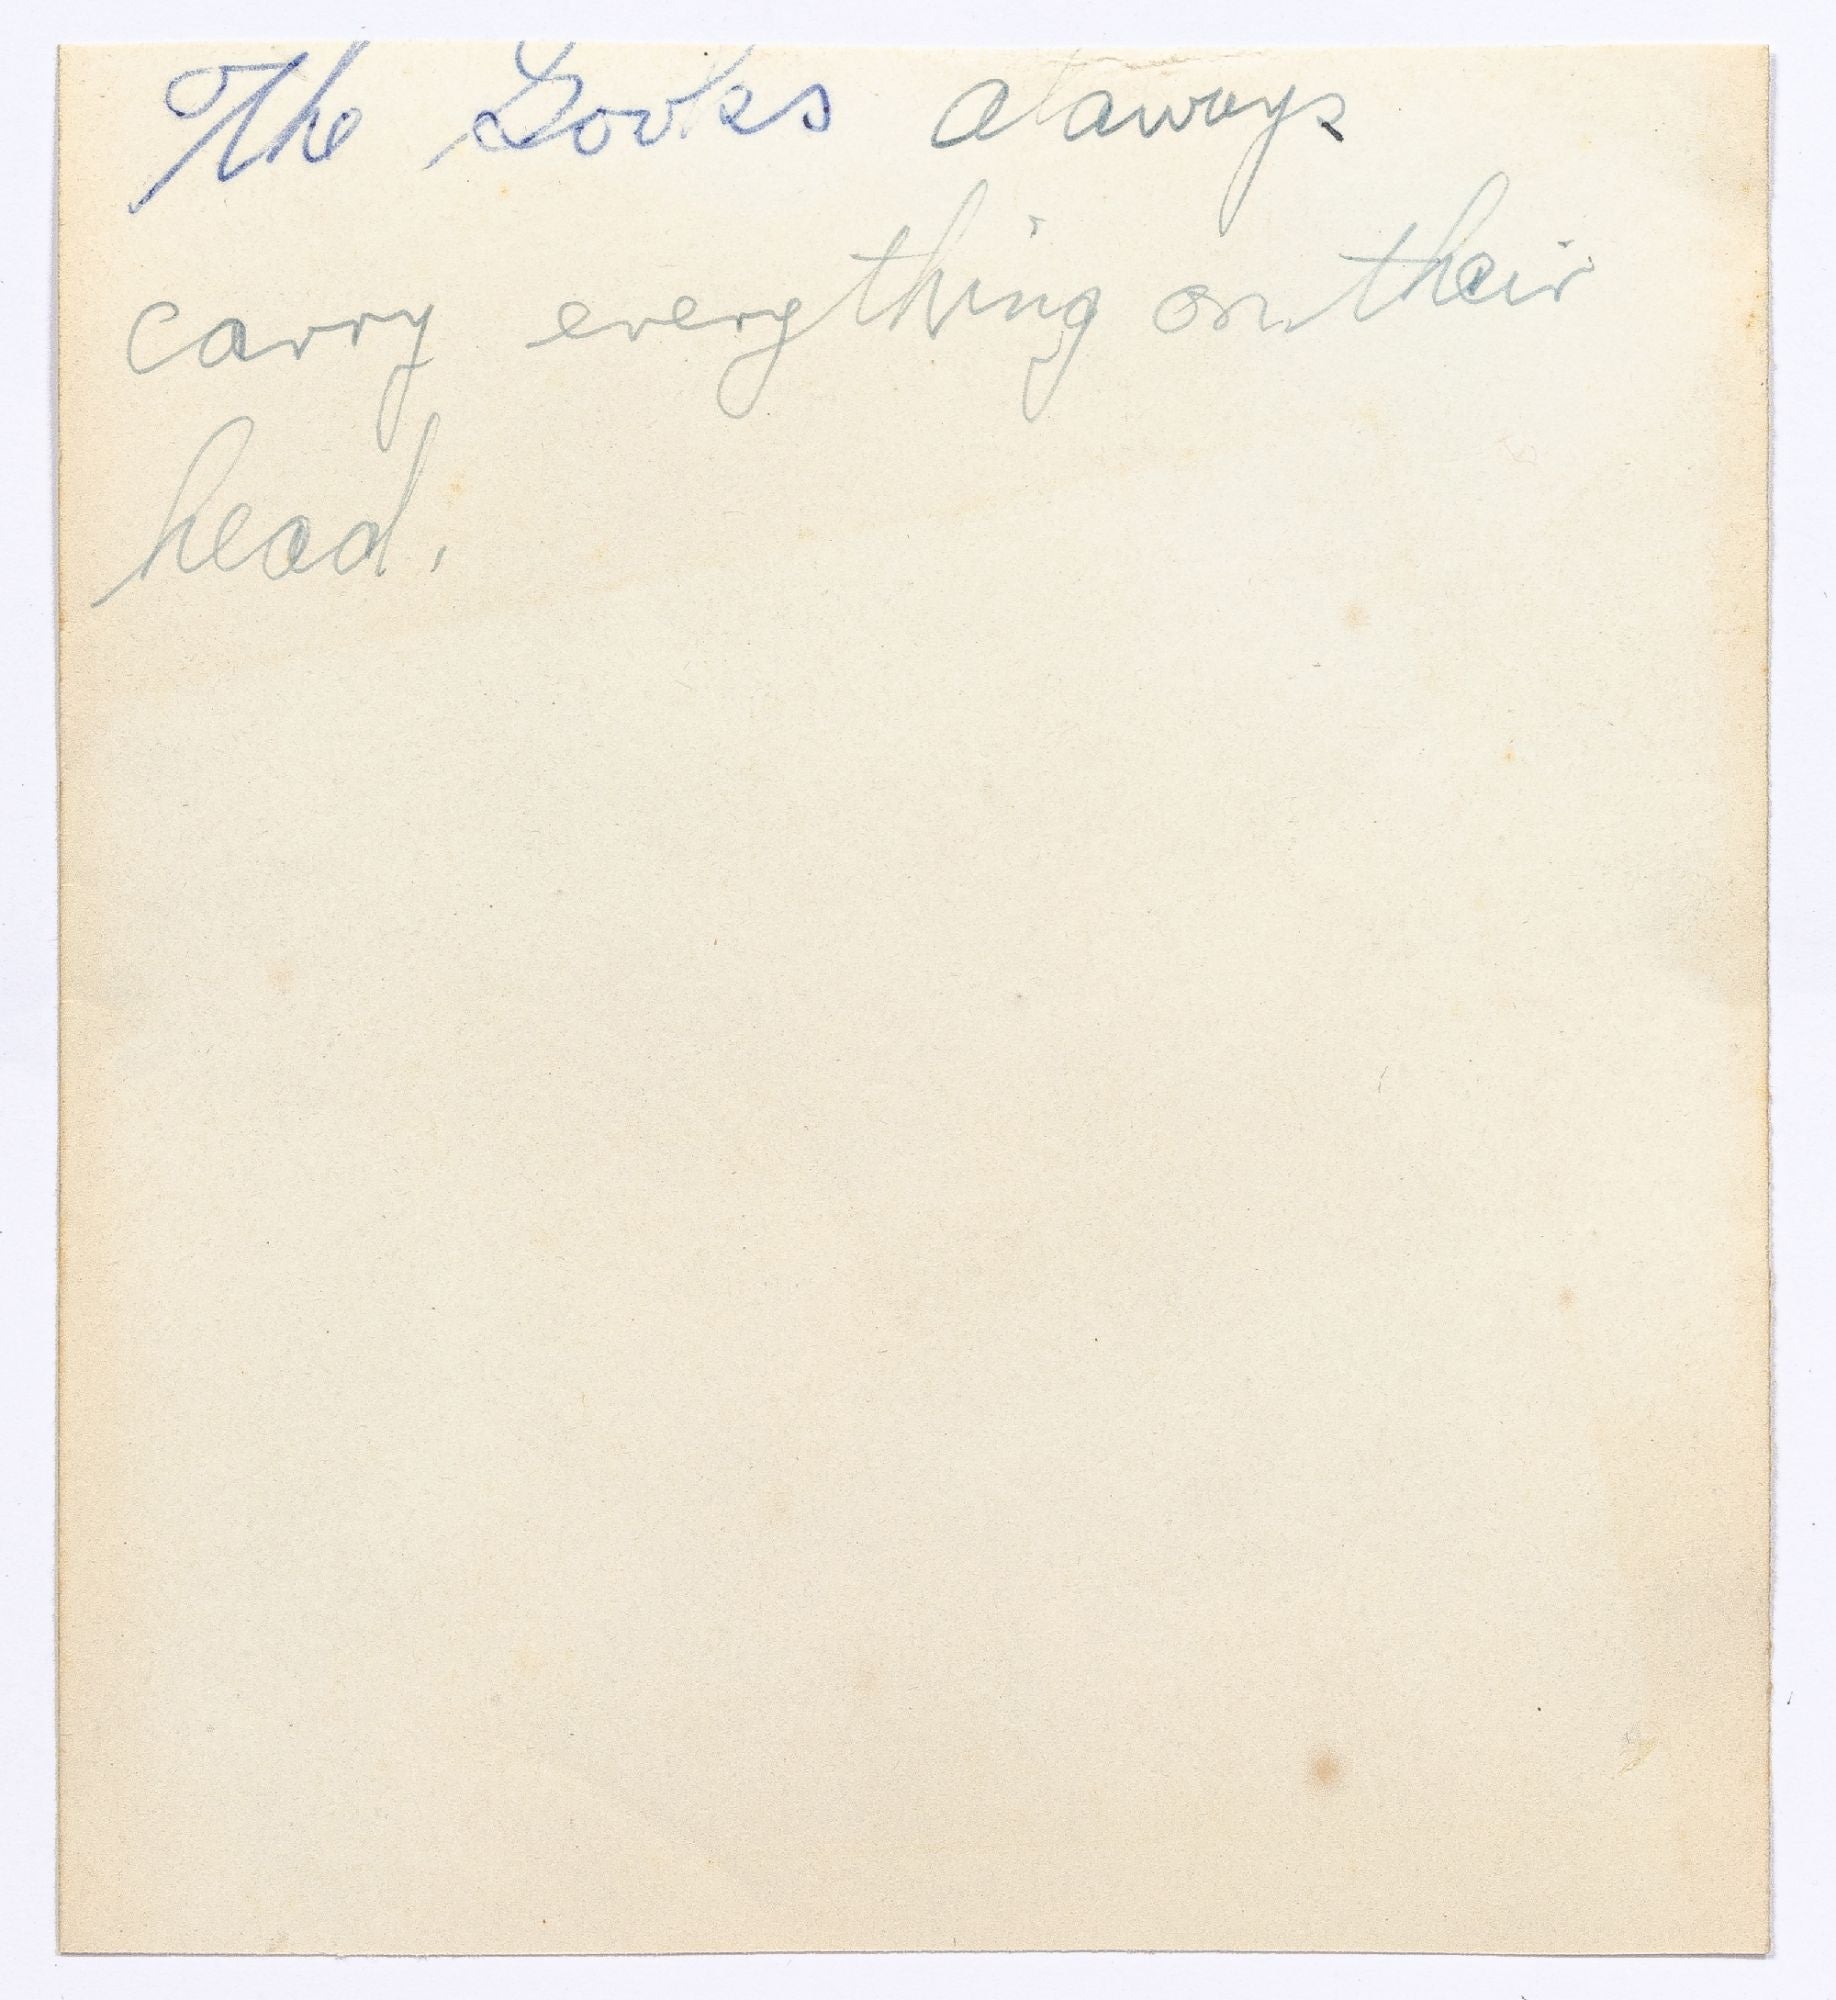 The Gooks alaways
carry everything on their
head.